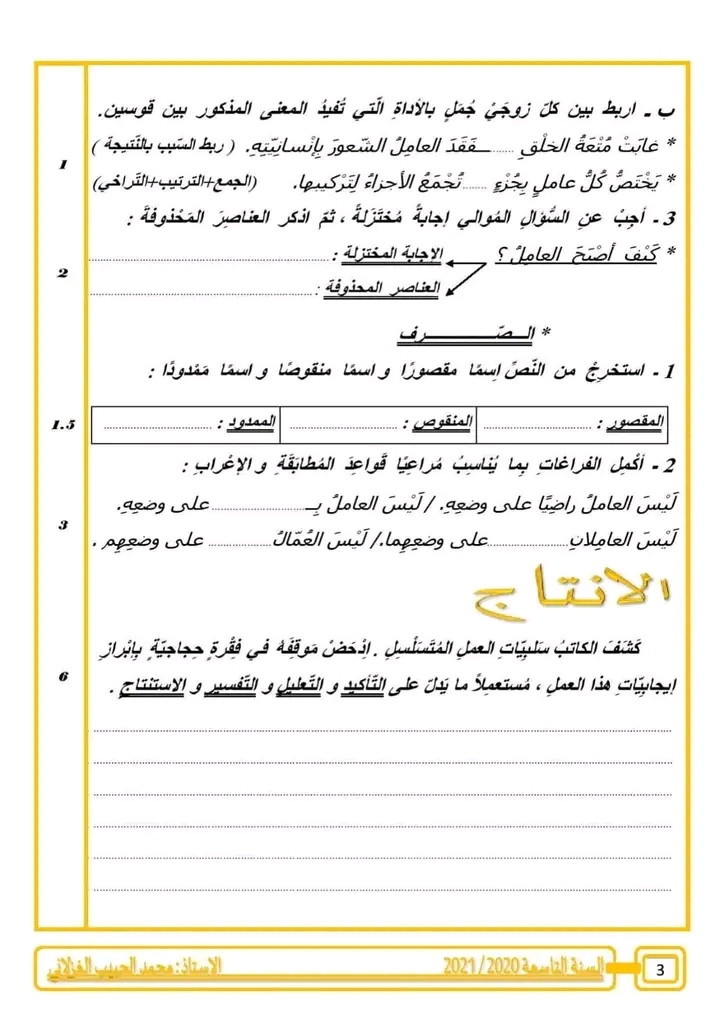 ب ـ اربط بين كلّ زوجَيْ جُمَلٍ بالأداةِ الّتي تُفيدُ المعنى المذكور بين قوسين.
* غابَتْ مُتْعَةُ الخلْقِ ........ـفَقَدَ العامِلُ الشّعورَ بِإنْسانِيّتِهِ. ( ربط السّبب بالنّتيجة )
1
* يَخْتَصُّ كُلُّ عاملٍ بِجُزْءٍ ........تُجْمَعُ الأجزاءُ لِتَرْكيبها. (الجمع+الترتيب+التّراخي)
3 ـ أجِبْ عنِ السُّؤالِ المُوالي إجابةً مُختَزَلةً ، ثمّ اذكر العناصِرَ المَحْذوفةَ :
* كَيْفَ أصْبَحَ العامِلُ ؟ الإجابة المختزلة : ........................
2
العناصر المحذوفة : ........................
* الـــصّــــــــــــرف
1 ـ استخرِجْ من النّصِّ اِسمًا مقصورًا و اسمًا منقوصًا و اسمًا مَمْدودًا :
المقصور : ........................ المنقوص : ........................ الممدود : ........................
1.5
2 ـ أكْمِلِ الفراغاتِ بِما يُناسِبُ مُراعِيًا قَواعِدَ المُطابَقَةِ و الإعْرابِ :
لَيْسَ العاملُ راضِيًا على وضعِهِ. / لَيْسَ العاملُ بِـ........................ على وضعِهِ.
3
لَيْسَ العامِلانِ........................على وضعِهِما./ لَيْسَ العُمّالُ.................. على وضعِهِم .
الانتاج
كَشَفَ الكاتبُ سَلبِيّاتِ العملِ المُتَسَلْسِلِ . اِدْحَضْ مَوقفَهُ في فِقْرةٍ حِجاجيّةٍ بِإبْرازِ
6
إيجابِيّاتِ هذا العملِ ، مُستعمِلاً ما يَدلّ على التّأكيدِ و التّعليلِ و التّفسيرِ و الاستنتاجِ .
الاستاذ: محمد الحبيب الغزلاني السنة التاسعة 2020/ 2021 3